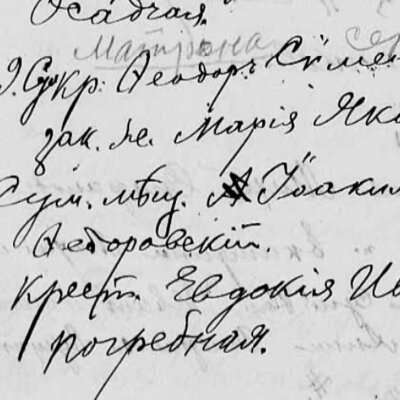 Осадчая.
Матрона
Ѳеодоръ Симе
зак. же. Марія Яко
Сум. мѣщ. Іоаким
Ѳедоровскій.
крест. Евдокія Ив
погребная.